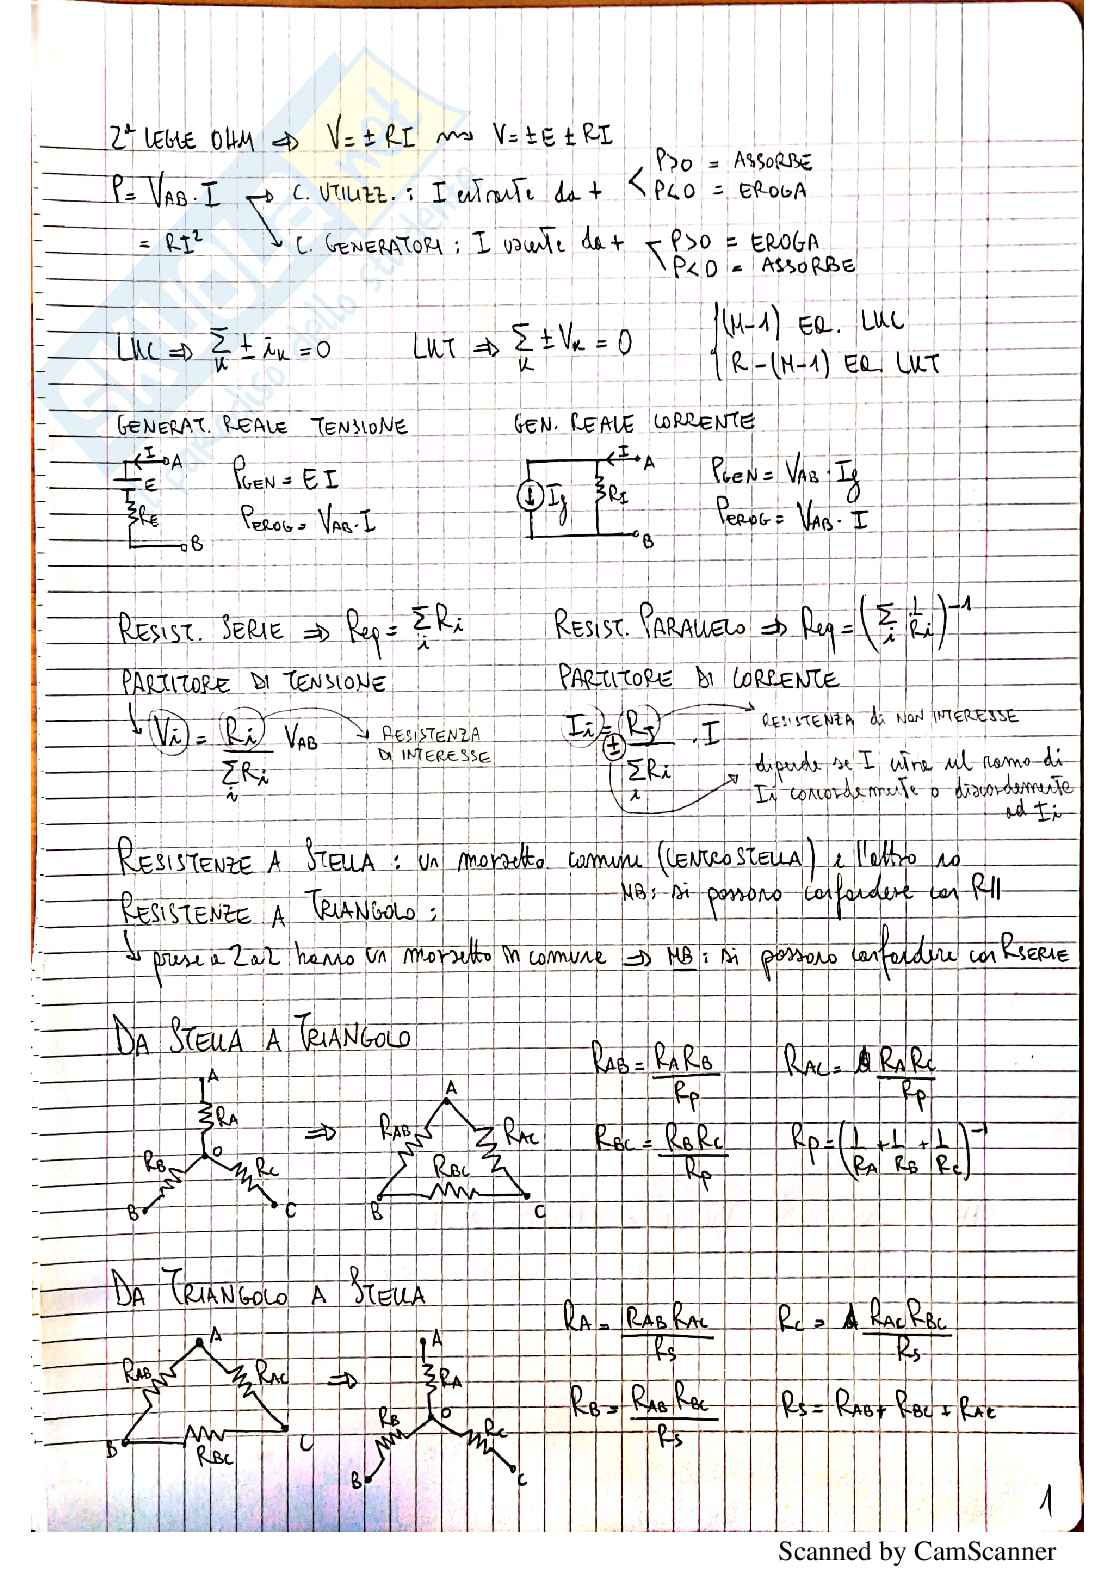 2ª LEGGE OHM ⇒ V=±RI ⇝ V=±E±RI
P=V_AB·I → C. UTILIZZ.: I entrante da + < P>0 = ASSORBE
P<0 = EROGA
= RI² ↘ C. GENERATORI: I uscente da + < P>0 = EROGA
P<0 = ASSORBE
LKC ⇒ Σ_k ± i_k = 0 LKT ⇒ Σ_k ± V_k = 0 { (N-1) EQ. LKC
R-(N-1) EQ. LKT
GENERAT. REALE TENSIONE GEN. REALE CORRENTE
I A E R_E B P_GEN = E I
P_EROG = V_AB·I
I A I_g R_I B P_GEN = V_AB·I_g
P_EROG = V_AB·I
RESIST. SERIE ⇒ Req = Σ_i R_i RESIST. PARALLELO ⇒ Req = (Σ_i 1/R_i)^-1
PARTITORE DI TENSIONE PARTITORE DI CORRENTE
↳ V_i = R_i / Σ_i R_i V_AB → RESISTENZA
DI INTERESSE
I_i = ± R_j / Σ_i R_i · I → RESISTENZA di NON INTERESSE
dipende se I entra nel ramo di
I_i concordemente o discordemente
ad I_i
RESISTENZE A STELLA: un morsetto comune (CENTRO STELLA) e l'altro no
NB: si possono confondere con R//
RESISTENZE A TRIANGOLO:
↳ prese a 2 a 2 hanno un morsetto in comune ⇒ NB: si possono confondere con R SERIE
DA STELLA A TRIANGOLO
A R_A O R_B R_C B C ⇒ A R_AB R_AC R_BC B C
R_AB = R_A R_B / R_p R_AC = R_A R_C / R_p
R_BC = R_B R_C / R_p R_p = (1/R_A + 1/R_B + 1/R_C)^-1
DA TRIANGOLO A STELLA
A R_AB R_AC R_BC B C ⇒ A R_A O R_B R_C B C
R_A = R_AB R_AC / R_S R_C = R_AC R_BC / R_S
R_B = R_AB R_BC / R_S R_S = R_AB + R_BC + R_AC
1
Scanned by CamScanner